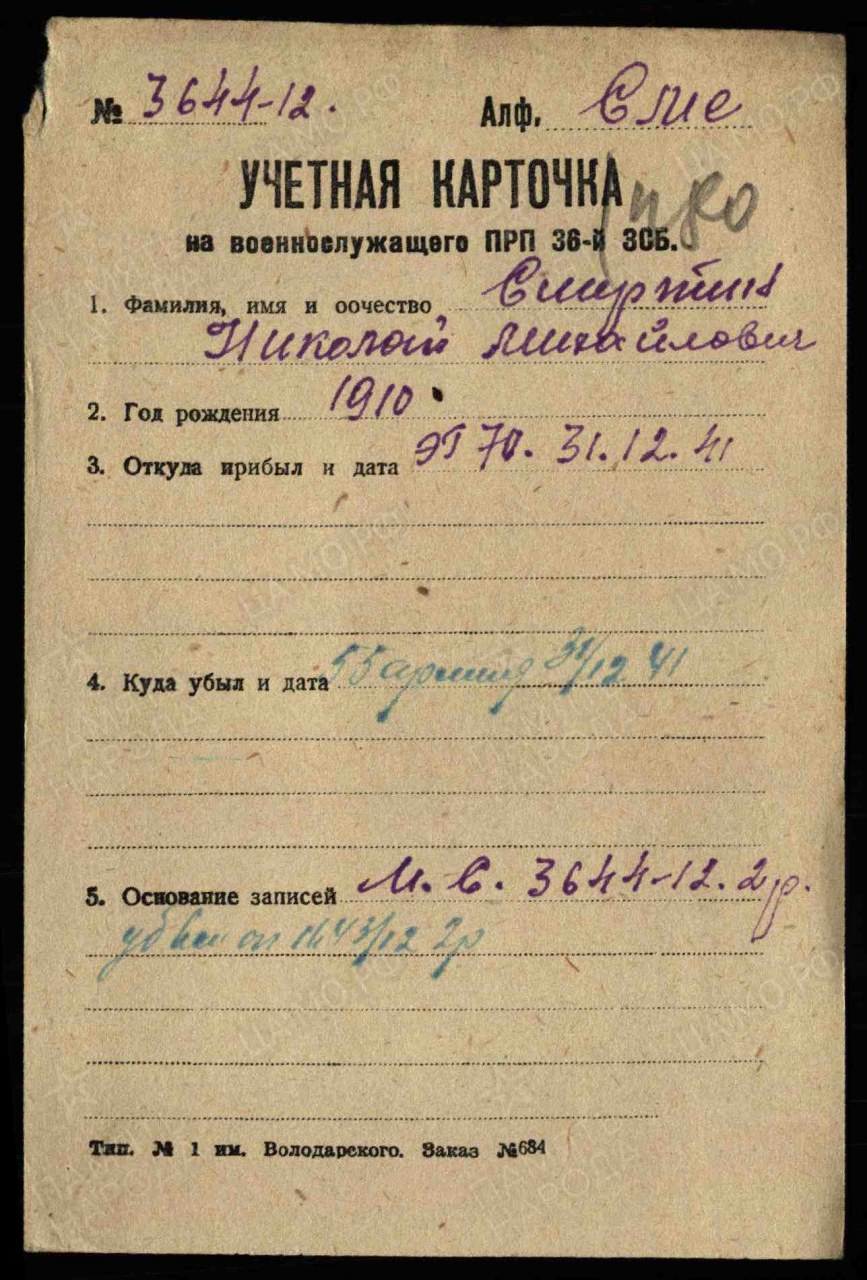 № 3644-12. Алф. Сме
УЧЕТНАЯ КАРТОЧКА
на военнослужащего ПРП 36-й ЗСБ.
1. Фамилия, имя и оочество
Николай Михайлович
2. Год рождения 1910
3. Откуда прибыл и дата ЭГ 70. 31.12.41
4. Куда убыл и дата 55 армия 31/12 41
5. Основание записей М. С. 3644-12. 2р.
2р
Тип. № 1 им. Володарского. Заказ №684
ЦАМО.РФ